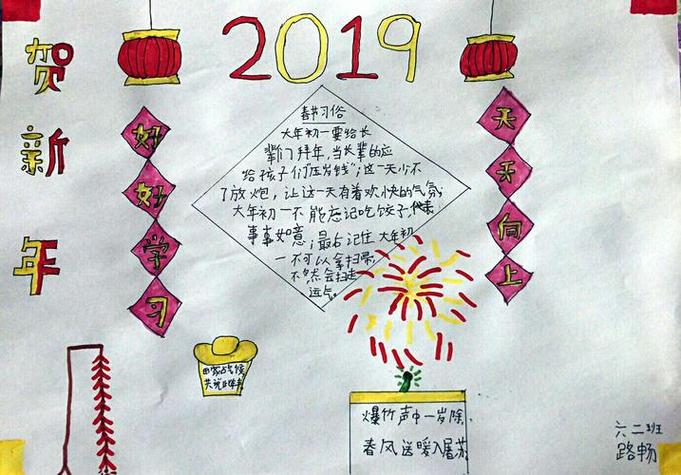 2019
贺新年
好好学习
天天向上
春节习俗
大年初一要给长
辈们拜年,当长辈的应
给孩子们"压岁钱";这一天少不
了放炮,让这一天有着欢快的气氛;
大年初一不能忘记吃饺子,代表
事事如意;最后记住大年初
一不可以拿扫帚,
不然会扫走
运气。
爆竹声中一岁除,
春风送暖入屠苏
六二班
路畅